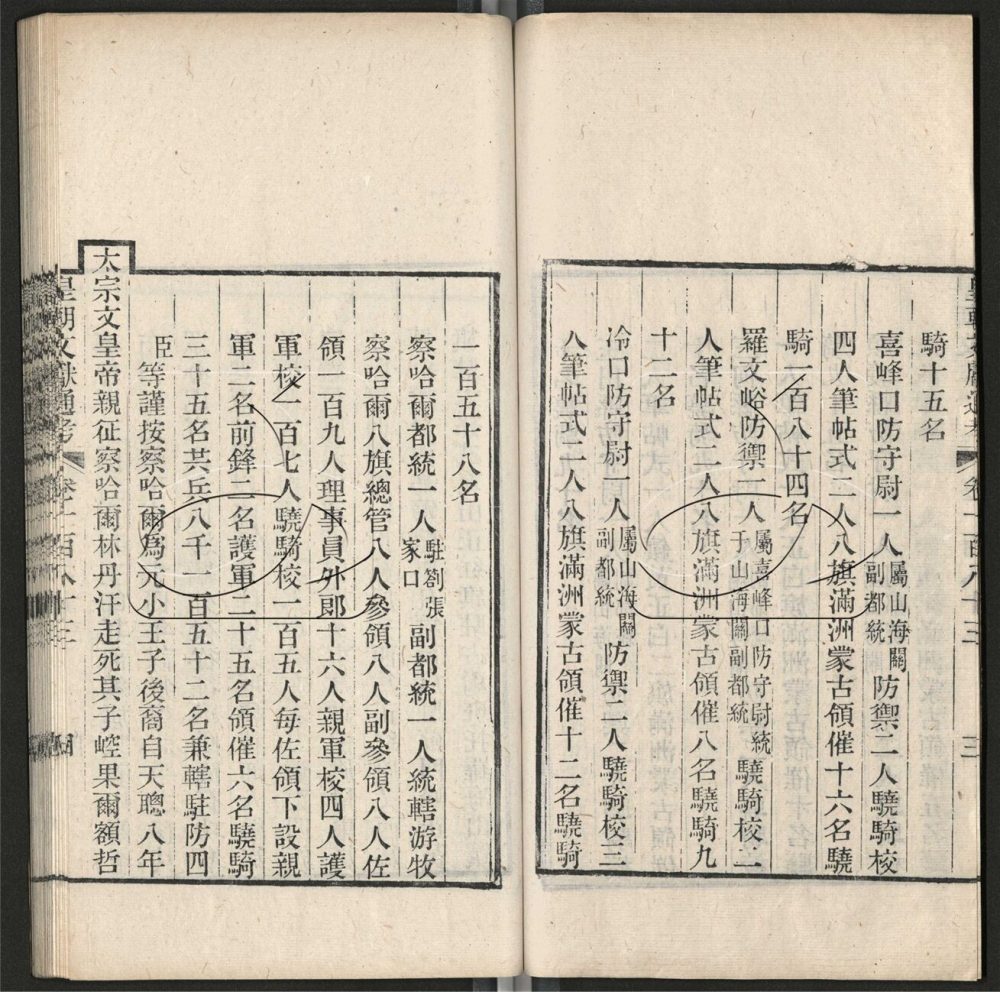 騎十五名
喜峰口防守尉一人屬山海關副都統防禦二人驍騎校
四人筆帖式二人八旗滿洲蒙古領催十六名驍
騎一百八十四名
羅文峪防禦二人屬喜峰口防守尉統于山海關副都統驍騎校二
人筆帖式二人八旗滿洲蒙古領催八名驍騎九
十二名
冷口防守尉一人屬山海關副都統防禦二人驍騎校三
人筆帖式二人八旗滿洲蒙古領催十二名驍騎
一百五十八名
察哈爾都統一人駐劄張家口副都統一人統轄游牧
察哈爾八旗總管八人參領八人副參領八人佐
領一百九人理事員外郎十六人親軍校四人護
軍校一百七人驍騎校一百五人每佐領下設親
軍二名前鋒二名護軍二十五名領催六名驍騎
三十五名共兵八千一百五十二名兼轄駐防四
臣等謹按察哈爾為元小王子後裔自天聰八年
太宗文皇帝親征察哈爾林丹汗走死其子崆果爾額哲
皇朝文獻通考 卷一百八十三